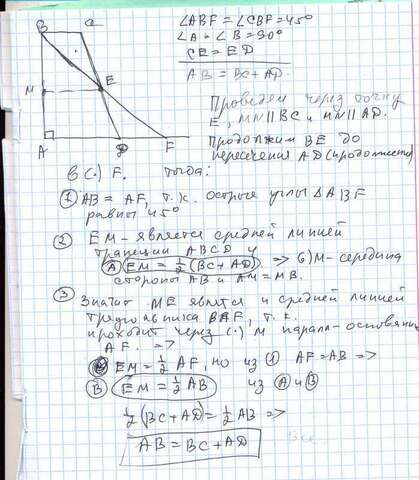 B C
∠ABF = ∠CBF = 45°
∠A = ∠B = 90°
CE = ED
AB = BC + AD
M E
A D F
Проведем через точку
E, MN||BC и MN||AD.
Продолжим BE до
пересечения AD (продолжения)
в (.) F. Тогда:
① AB = AF, т.к. острые углы △ABF
равны 45°
② EM – является средней линией
трапеции ABCD и
Ⓐ EM = ½(BC + AD) => б) M – середина
стороны AB и AM = MB.
③ Значит ME является и средней линией
треугольника BAF, т.к.
проходит через (.) M паралл. основанию
AF. =>
EM = ½ AF, но из ① AF = AB =>
Ⓑ EM = ½ AB из Ⓐ и Ⓑ
½(BC + AD) = ½ AB =>
AB = BC + AD